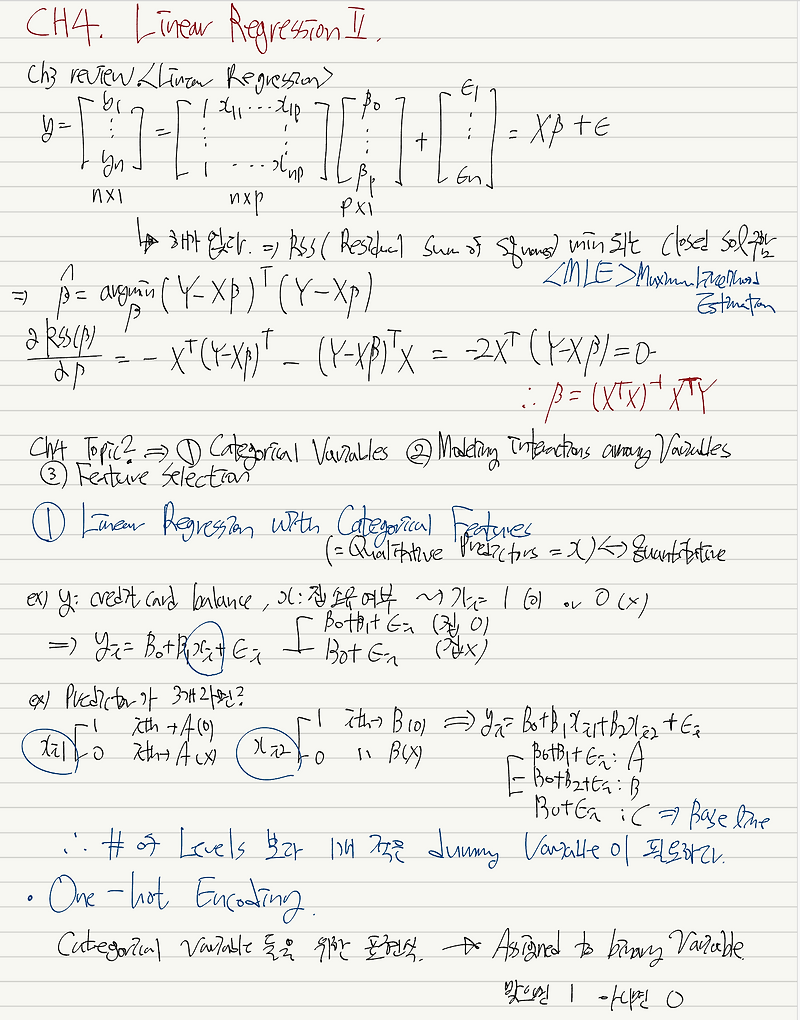 CH4. Linear Regression II.
Ch3 review <Linear Regression>
y = [y1 ⋮ yn] = [1 x11 ⋯ x1p ⋮ ⋮ 1 ⋯ xnp] [β0 ⋮ βp] + [ϵ1 ⋮ ϵn] = Xβ + ϵ
n×1 n×p p×1
↳ 해가 없다. ⇒ RSS (Residual sum of squares) min 되는 closed sol 구함
<MLE> Maximum Likelihood Estimation
⇒ β̂ = argmin β (Y-Xβ)^T (Y-Xβ)
∂RSS(β)/∂β = - X^T (Y-Xβ)^T - (Y-Xβ)^T X = -2X^T (Y-Xβ) = 0
∴ β = (X^T X)^-1 X^T Y
Ch4 Topic? ⇒ ① Categorical Variables ② Modeling interactions among Variables
③ Feature Selection
① Linear Regression with Categorical Features
(= Qualitative Predictors = x) ↔ Quantitative
ex) y: credit card balance, x: 집 소유 여부 ~> xi = 1 (O) or 0 (X)
⇒ yi = β0+β1xi + ϵi β0+β1+ϵi (집 O)
β0+ϵi (집 X)
ex) Predictor가 3개라면?
xi1 1 ith → A(O) xi2 1 ith → B(O) ⇒ yi = β0+β1xi1+β2xi2+ϵi
0 ith → A(X) 0 〃 B(X)
β0+β1+ϵi : A
β0+β2+ϵi : B
β0+ϵi : C ⇒ Base line
∴ # of Levels 보다 1개 적은 dummy Variable이 필요하다.
• One-hot Encoding.
Categorical Variable들을 위한 표현식. → Assigned to binary Variable.
맞으면 1 아니면 0